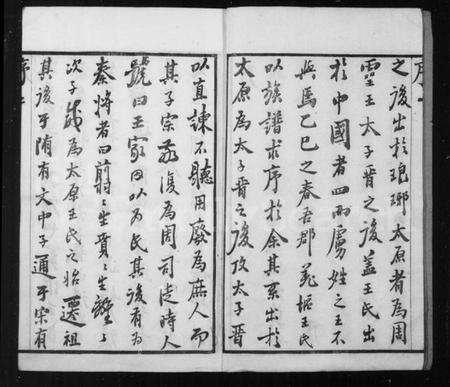 之後出於琅琊太原者為周
靈王太子晉之後蓋王氏出
於中國者四而虜姓之王不
與焉乙巳之春吾郡義板王氏
以族譜求序於余其系出於
太原為太子晉之後攷太子晉
以直諫不聽用廢為庶人而
其子宗敬復為周司徒時人
號曰王家因以為氏其後有為
秦將者曰翦翦生賁賁生離離
次子威為太原王氏之始遷祖
其後于隋有文中子通于宋有